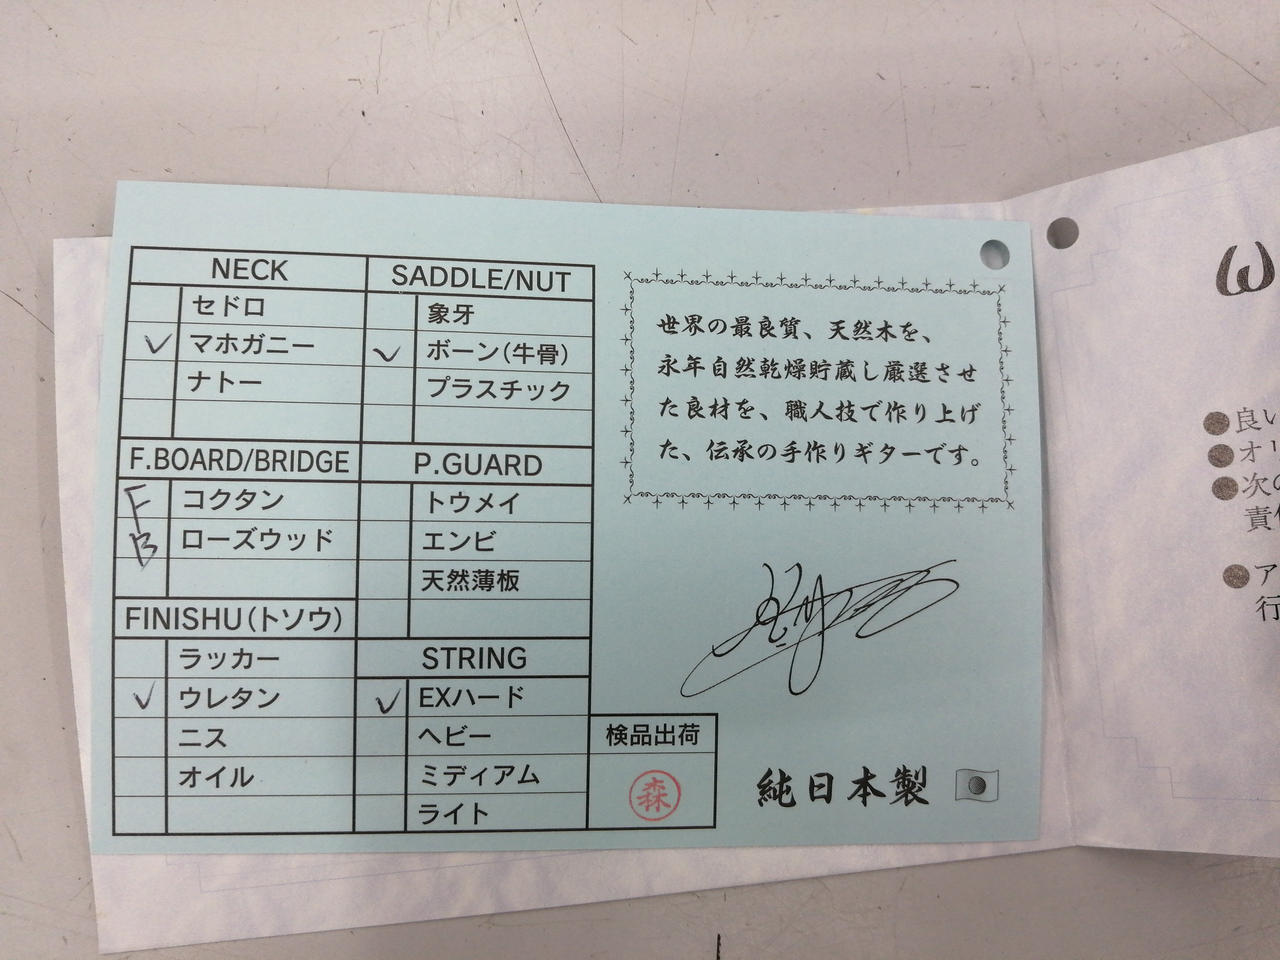 NECK
セドロ
✓ マホガニー
ナトー
SADDLE/NUT
象牙
✓ ボーン(牛骨)
プラスチック
F.BOARD/BRIDGE
F コクタン
B ローズウッド
P.GUARD
トウメイ
エンビ
天然薄板
FINISHU(トソウ)
ラッカー
✓ ウレタン
ニス
オイル
STRING
✓ EXハード
ヘビー
ミディアム
ライト
検品出荷
森
世界の最良質、天然木を、
永年自然乾燥貯蔵し厳選させ
た良材を、職人技で作り上げ
た、伝承の手作りギターです。
純日本製
良い
オリ
次の
責任
ア
行